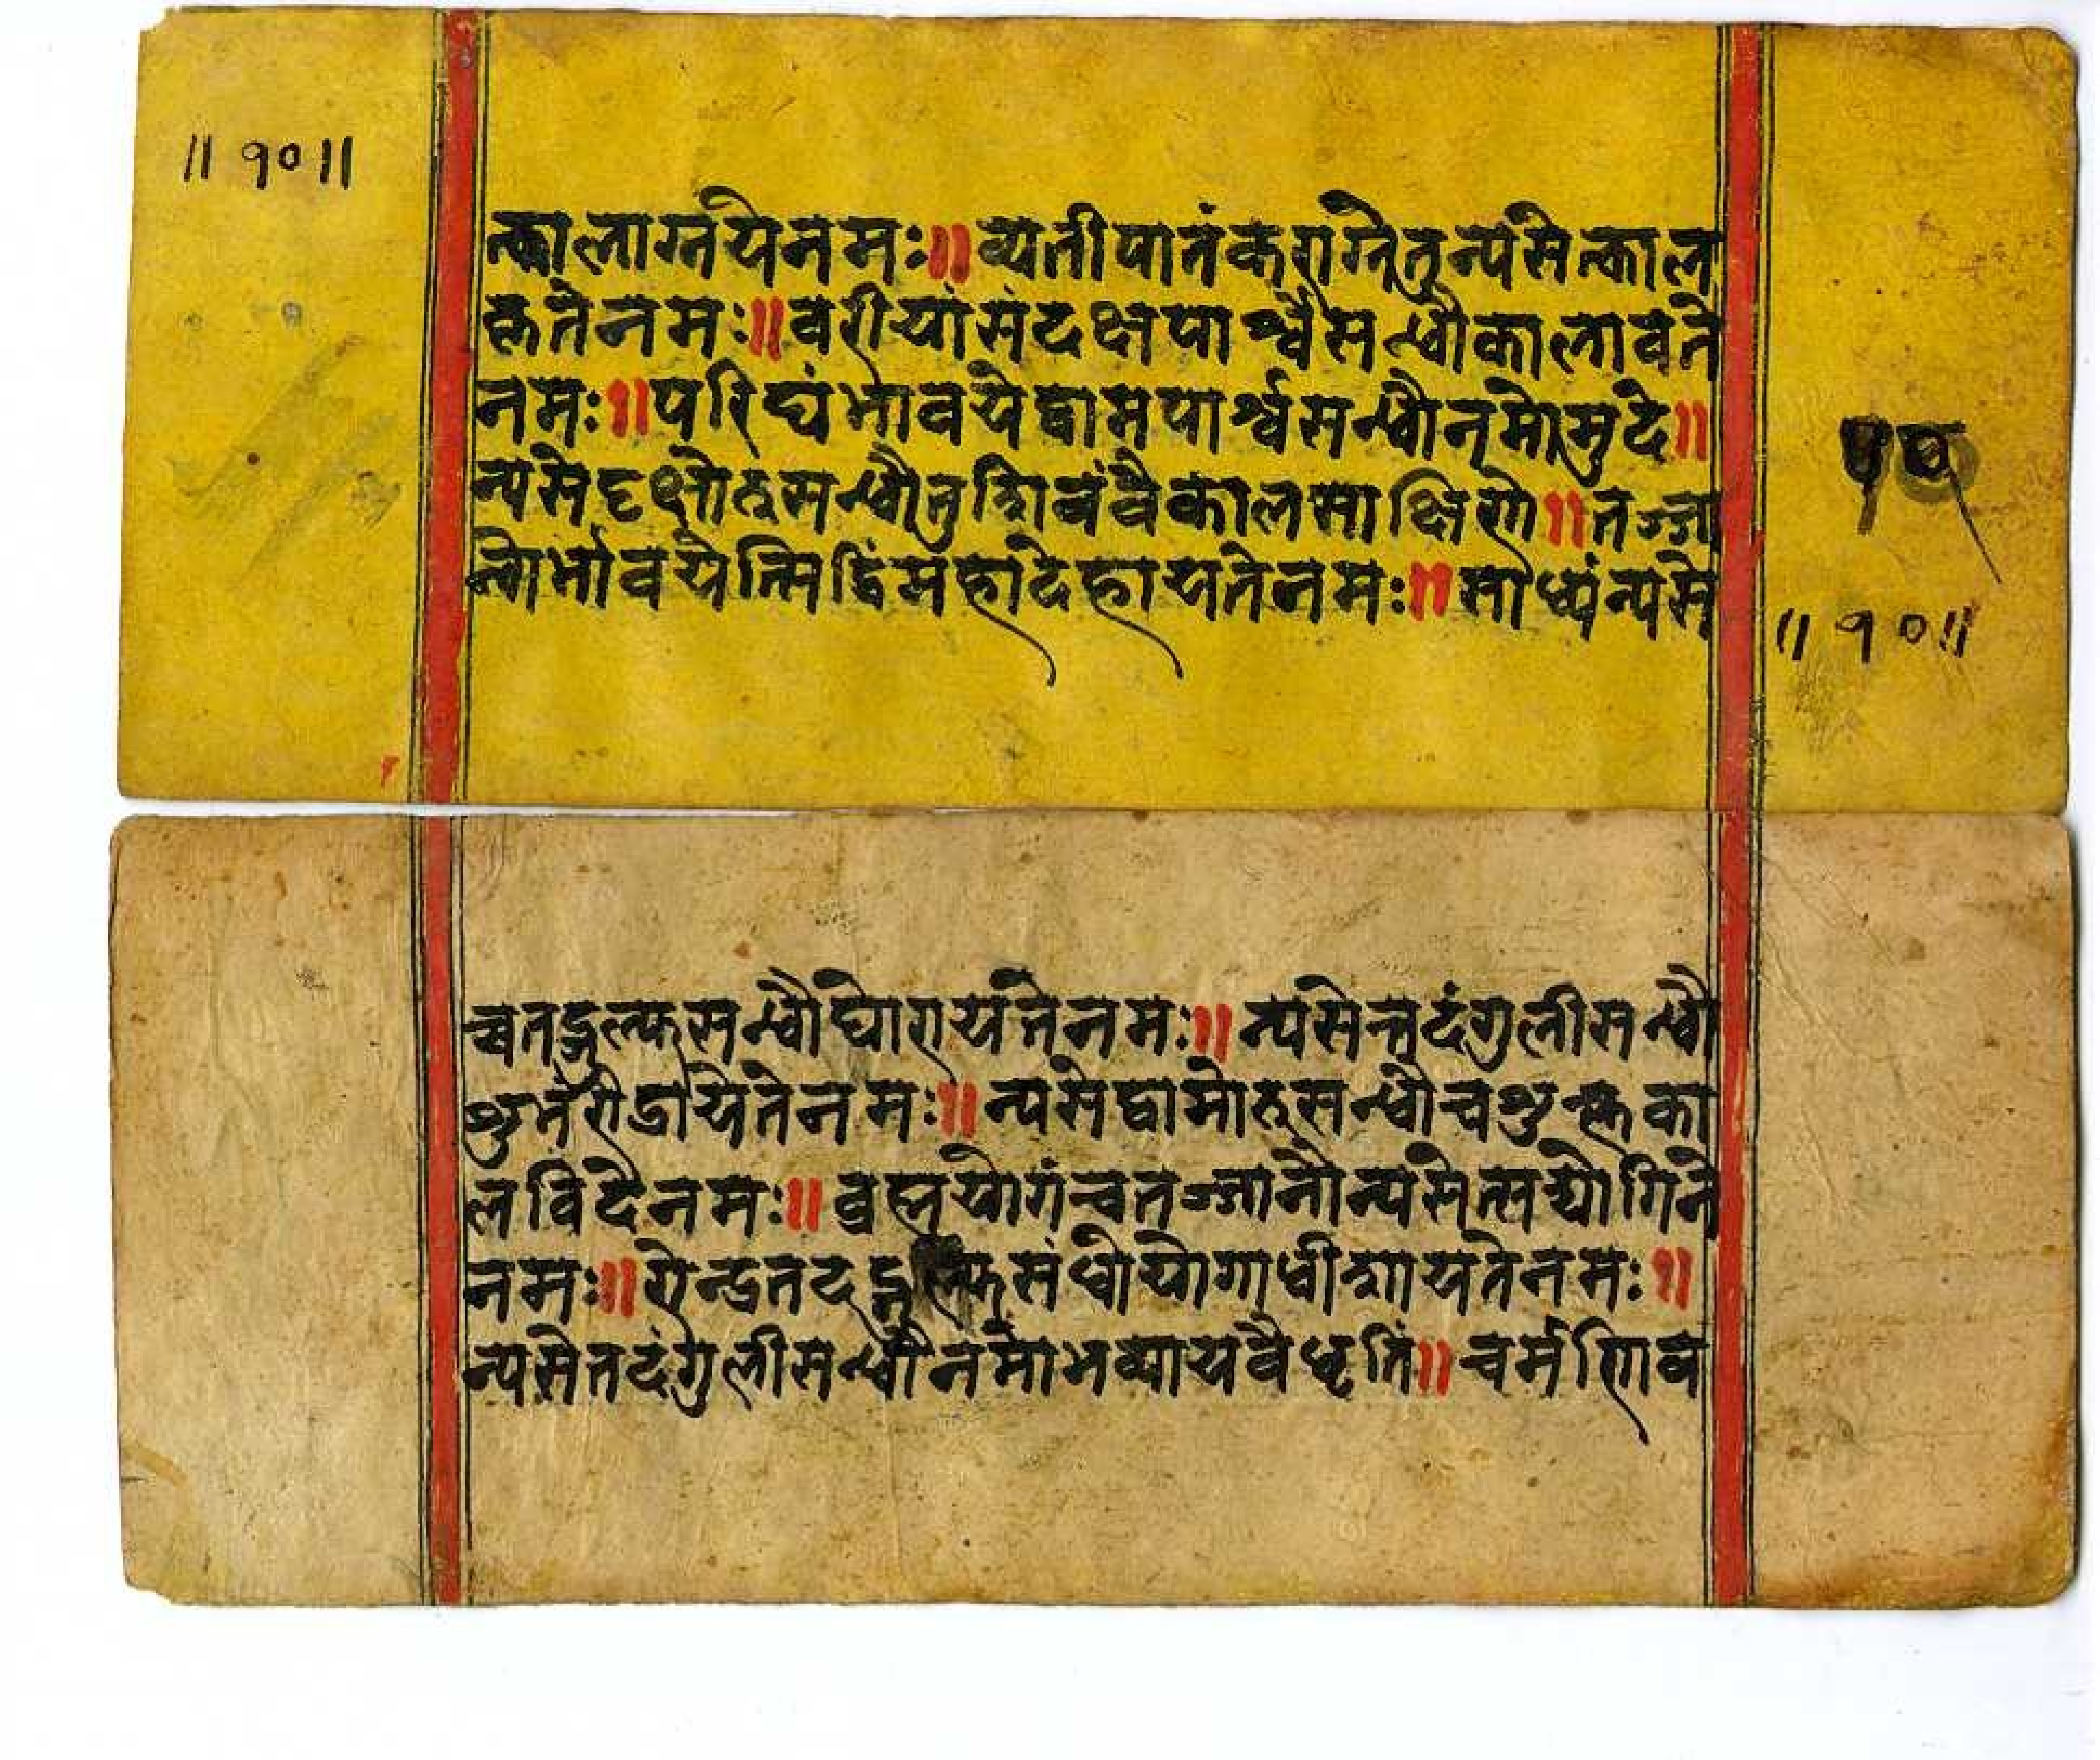 ॥ १० ॥
त्कालाग्नयेनमः॥व्यतीपातंकराग्रेतुन्यसेत्काल
कृतेनमः॥वरीयांसंदक्षपार्श्वसन्धौकालावने
नमः॥परिघंभावयेद्वामपार्श्वसन्धौनमोमुदे॥
न्यसेद्दक्षोरुसन्धौतुशिवंवैकालसाक्षिणे॥तज्जा
नोर्भावयेत्सिद्धिंमहादेहायतेनमः॥साध्यंन्यसे
॥ १० ॥
च्चतद्गुल्फसन्धौघोरायतेनमः॥न्यसेत्तदंगुलीसन्धौ
शुभंरौद्रायतेनमः॥न्यसेद्वामोरुसन्धौचशुक्लका
लविदेनमः॥ब्रह्मयोगंचतज्जानौन्यसेत्सद्योगिने
नमः॥ऐन्द्रतद्गुल्फसंधौयोगाधीशायतेनमः॥
न्यसेतदंगुलीसन्धौनमोभव्यायवैधृतिं॥चर्मणिव